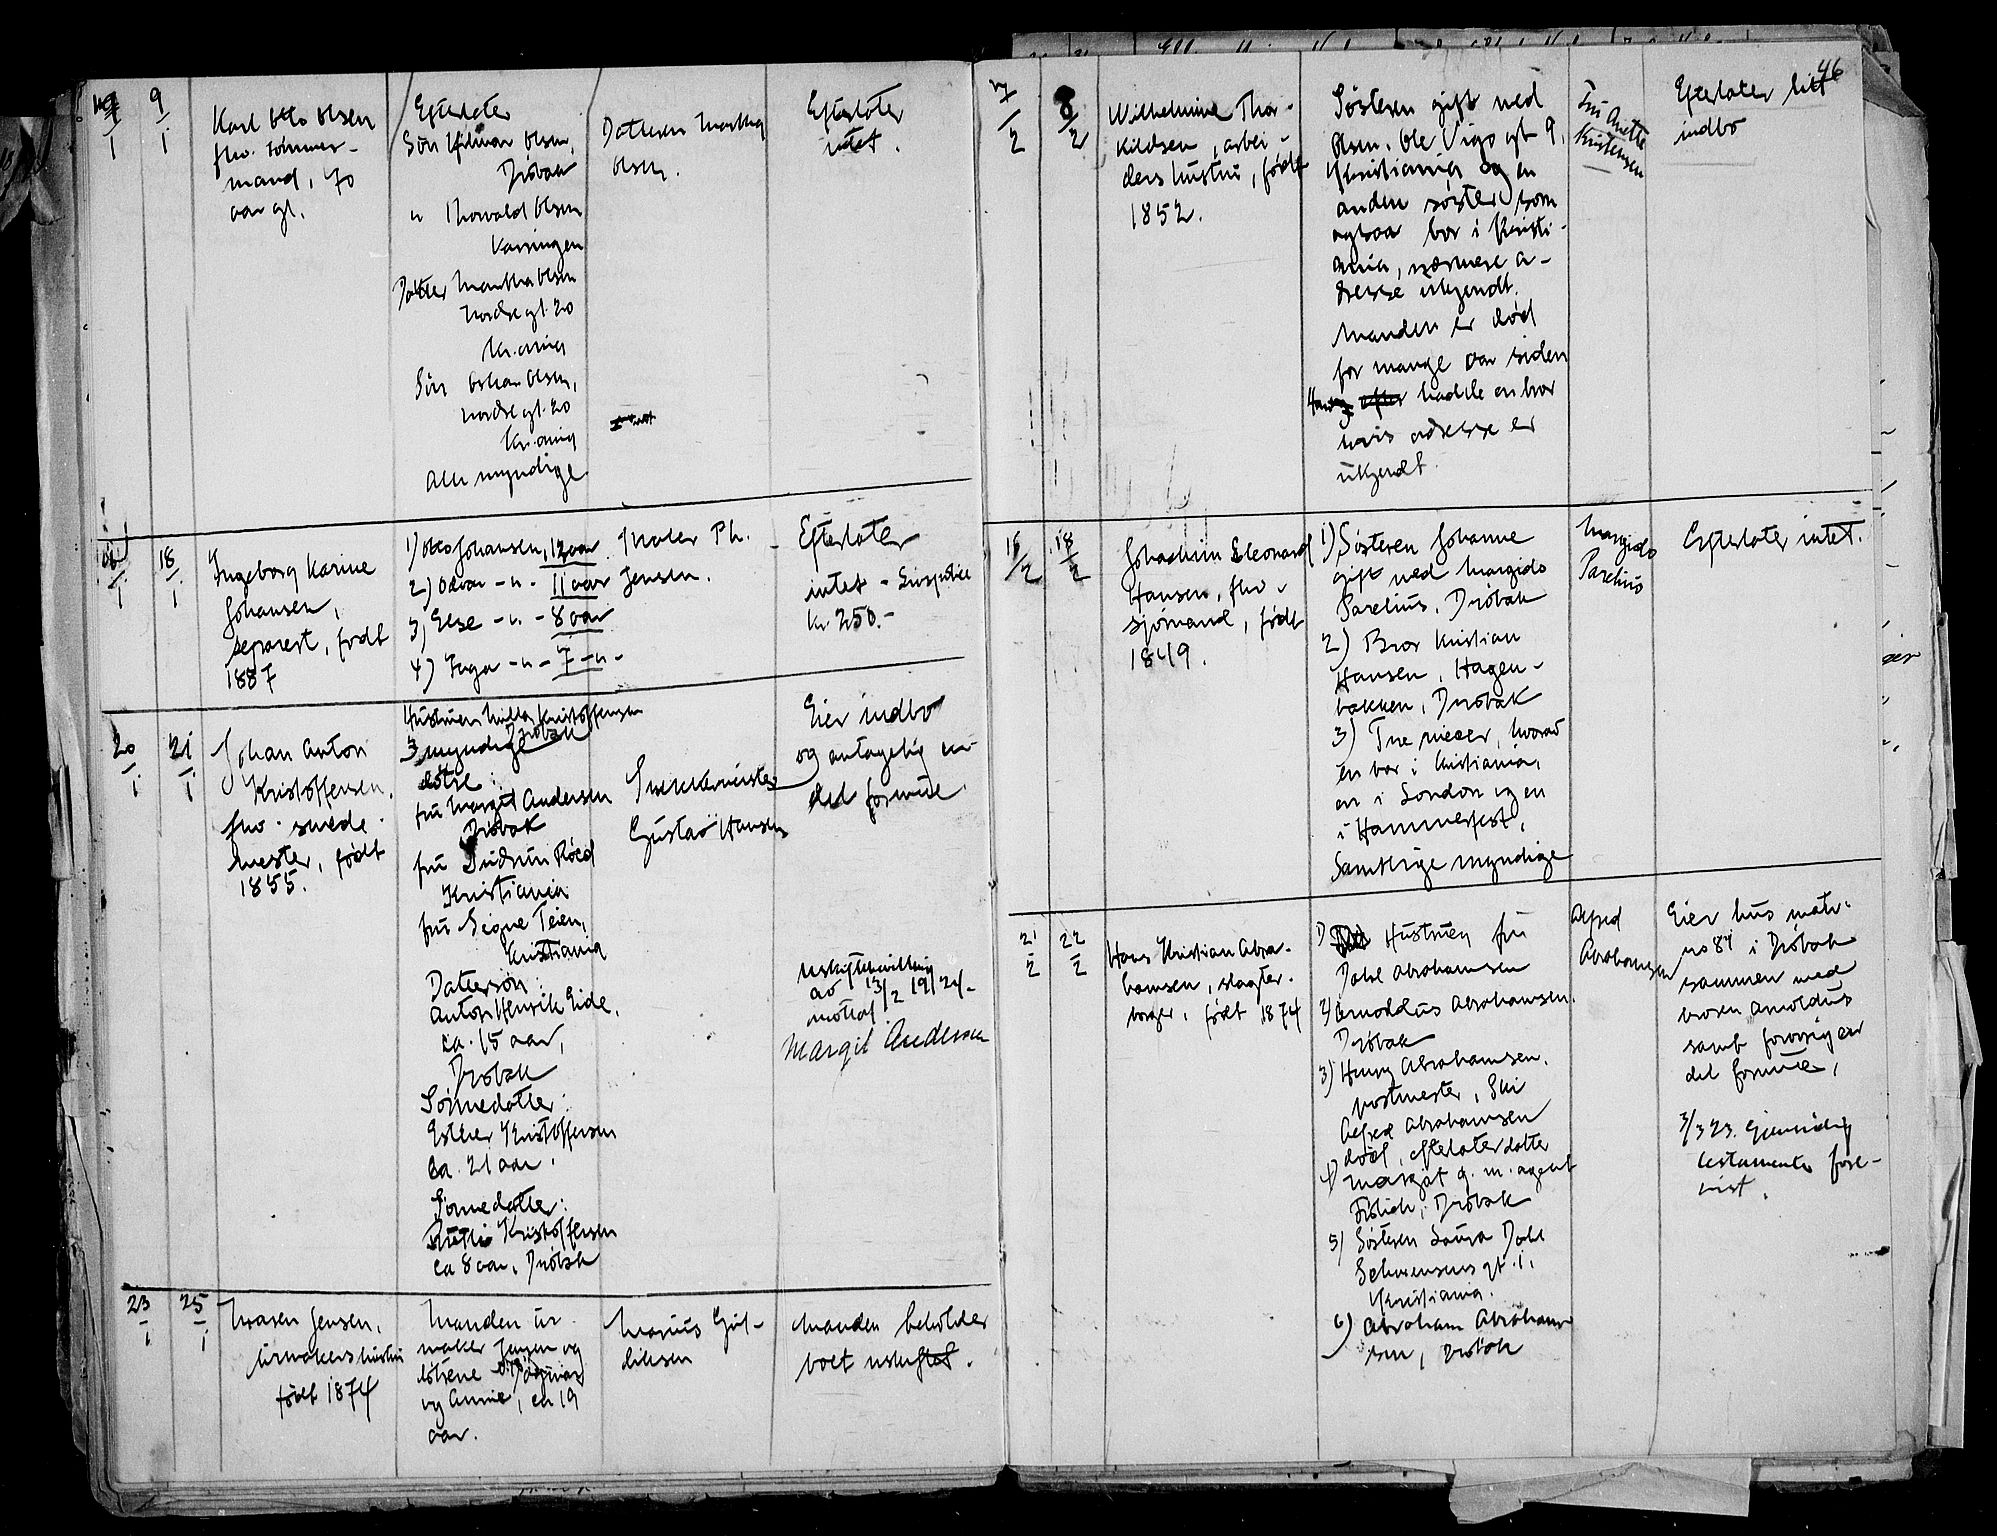 46
9/1
Karl Otto Olsen
fhv. tømmer-
mand, 70
aar gl.
Efterlater
Søn Hilmar Olsen,
Drøbak
" Thorvald Olsen
Datter Martha Olsen
Nordre gt. 20
Kr.ania
Søn Oskar Olsen,
Nordre gt. 20
Kr.ania
Alle myndige
Datteren Martha
Olsen.
Efterlater
intet.
18/1
Ingeborg Karine
Johansen,
separert, født
1887
1) Otto Johansen, 12 aar
2) Oskar -"- 11 aar
3) Else -"- 8 aar
4) Inga -"- 7 -"-
Maler Ph.
Jensen.
Efterlater
intet - Livspolice
kr 250.-
20/1
21/1
Johan Anton
Kristoffersen,
fhv. smede-
mester, født
1855.
Hustruen Milla Kristoffersen
Drøbak
3 myndige
døtre:
fru Margit Andersen
Drøbak
fru Gudrun Röed
Kristiania
fru Signe Teien,
Kristiania
Dattersøn:
Anton Henrik Eide,
ca. 15 aar,
Drøbak
Sønnedatter:
Esther Kristoffersen
ca. 21 aar.
Sønnedatter:
Ruth Kristoffersen
ca 8 aar, Drøbak
Snekkermester
Gustav Hansen
Eier indbo
og antagelig en
del formue.
Uskiftebevilling
av 13/2 1924
mottat.
Margit Andersen
23/1
25/1
Maren Jensen,
urmakers hustru
født 1874
Manden ur-
maker Jensen og
døtrene Dagmar
og Annie, ca 19
aar.
Marius Gul-
liksen
Manden beholder
boet uskiftet.
7/2
8/2
Wilhelmine Thor-
kildsen, arbei-
ders hustru, født
1852.
Søsteren gift med
Olsen, Ole Vigs gt 9,
Kristiania og en
anden søster som
ogsaa bor i Kristi-
ania, nærmere a-
dresse ukjendt.
Manden er død
for mange aar siden
hadde en bror
hvis adresse er
ukjendt.
Fru Anette
Kristensen
Efterlater litt
indbo
16/2
18/2
Joachim Leonard
Hansen, fhv.
sjømand, født
1849.
1) Søsteren Johanne
gift med Margido
Parelius, Drøbak
2) Bror Kristian
Hansen, Hagen-
bakken, Drøbak
3) Tre niecer, hvorav
en bor i Kristiania,
en i London og en
i Hammerfest,
Samtlige myndige
Margido
Parelius
Efterlater intet.
21/2
22/2
Hans Kristian Abra-
hamsen, slagter-
borger, født 1874
1) Hustruen fru
Dahl Abrahamsen
2) Arnoldus Abrahamsen.
Drøbak
3) Henry Abrahamsen,
postmester, Ski
Alfred Abrahamsen
død, efterlater datter
4) Margot g. m. agent
Frölich, Drøbak
5) Søsteren Laura Dahl
Schwensens gt. 1,
Kristiania.
6) Abraham Abraham-
sen, Drøbak
Alfred
Abrahamsen
Eier hus matr.
no 84 i Drøbak
sammen med
broren Arnoldus
samt forøvrig en
del formue,
3/3 23. Gjensidig
testamente fore-
vist.